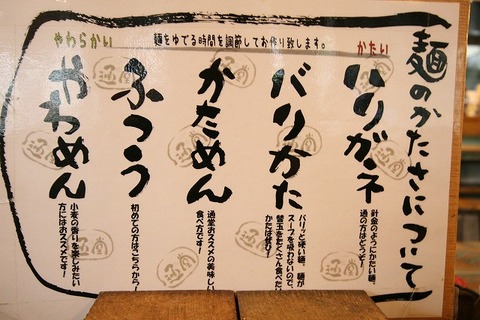 麺のかたさについて
かたい
麺をゆでる時間を調節してお作り致します。
やわらかい
ハリガネ
針金のようにかたい麺。
通の方はどうぞ!
バリかた
バリッと硬い麺。麺が
スープを吸わないので、
替玉をたくさん食べたい
かたは是非!
かためん
通堂おススメの美味しい
食べ方です!
ふつう
初めての方はこちらから!
やわめん
小麦の香りを楽しみたい
方にはおススメです!